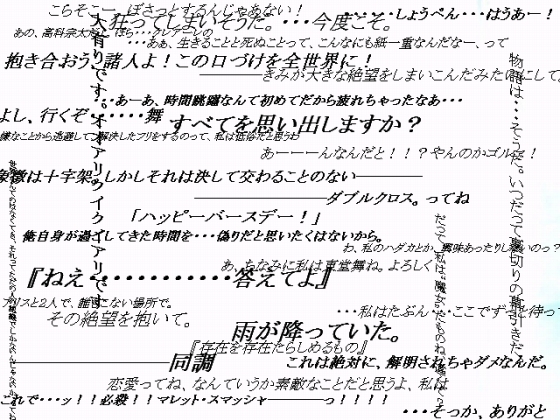 こらそこー、ぼさっとするんじゃあない！
狂ってしまいそうだ。・・・今度こそ。
しょうべん・・・はうあー！
・・・あぁ、生きることと死ぬことって、こんなにも紙一重なんだなー、って
抱き合おう、諸人よ！この口づけを全世界に！
―――――きみが大きな絶望をしまいこんだみたいにして
・・・あーあ、時間跳躍なんて初めてだから疲れちゃったなあ・・・
よし、行くぞ・・・・・・舞
すべてを思い出しますか？
嫌なことから逃避して、解決したフリをするのって、私は低俗だと思うわ
あーーーんなんだと！！？やんのかゴルァ！
象徴は十字架。しかしそれは決して交わることのない――――
―――――――――ダブルクロス。ってね
「ハッピーバースデー！」
俺自身が過ごしてきた時間を・・・偽りだと思いたくはないから。
わ、私のハダカとか、興味あったりしないのっ？
あ、ちなみに私は東堂舞ね。よろしく
『ねえ・・・・・・・・・・・答えてよ』
アリスと2人で、誰もこない場所で。
・・・私はたぶん・・・ここでずっと待って
その絶望を抱いて。
雨が降っていた。
『存在を存在たらしめるもの』
―――――――――同調
これは絶対に、解明されちゃダメなんだ。
恋愛ってね、なんていうか素敵なことだと思うよ、私は
これで・・・ッ！！必殺！！マレット・スマッシャー―――っ！！！！
・・・そっか、ありがと
物語は・・・そうだ。いつだって裏切りの幕引きだ
だって、私は。魔女だものね